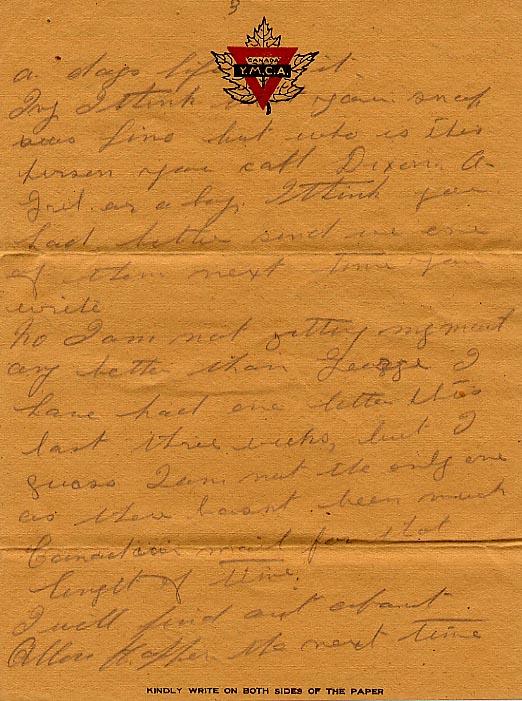 3
CANADA
Y.M.C.A.
a days
I think your snap
was fine but who is this
person you call Dixon. A
Girl. or a boy. I think you
had better send me one
of them next time you
write
no I am not getting my mail
any better than George I
have had one letter this
last three weeks, but I
guess I am not the only one
as there hasnt been much
Canadian mail for that
lenght of time.
I will find out about
Allan the next time
KINDLY WRITE ON BOTH SIDES OF THE PAPER